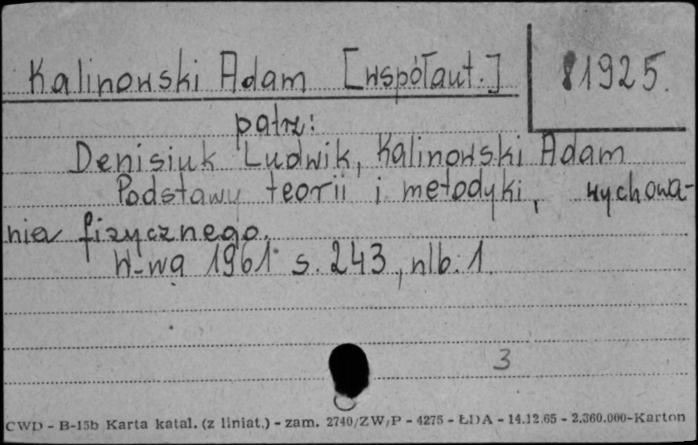 Kalinowski Adam [współaut.]
1925.
patrz:
Denisiuk Ludwik, Kalinowski Adam
Podstawy teorii i metodyki, wychowa-
nia fizycznego.
W-wa 1961 s. 243, nlb. 1.
3
CWD - B-15b Karta katal. (z liniat.) - zam. 2740/ZW/P - 4275 - ŁDA - 14.12.65 - 2.360.000-Karton